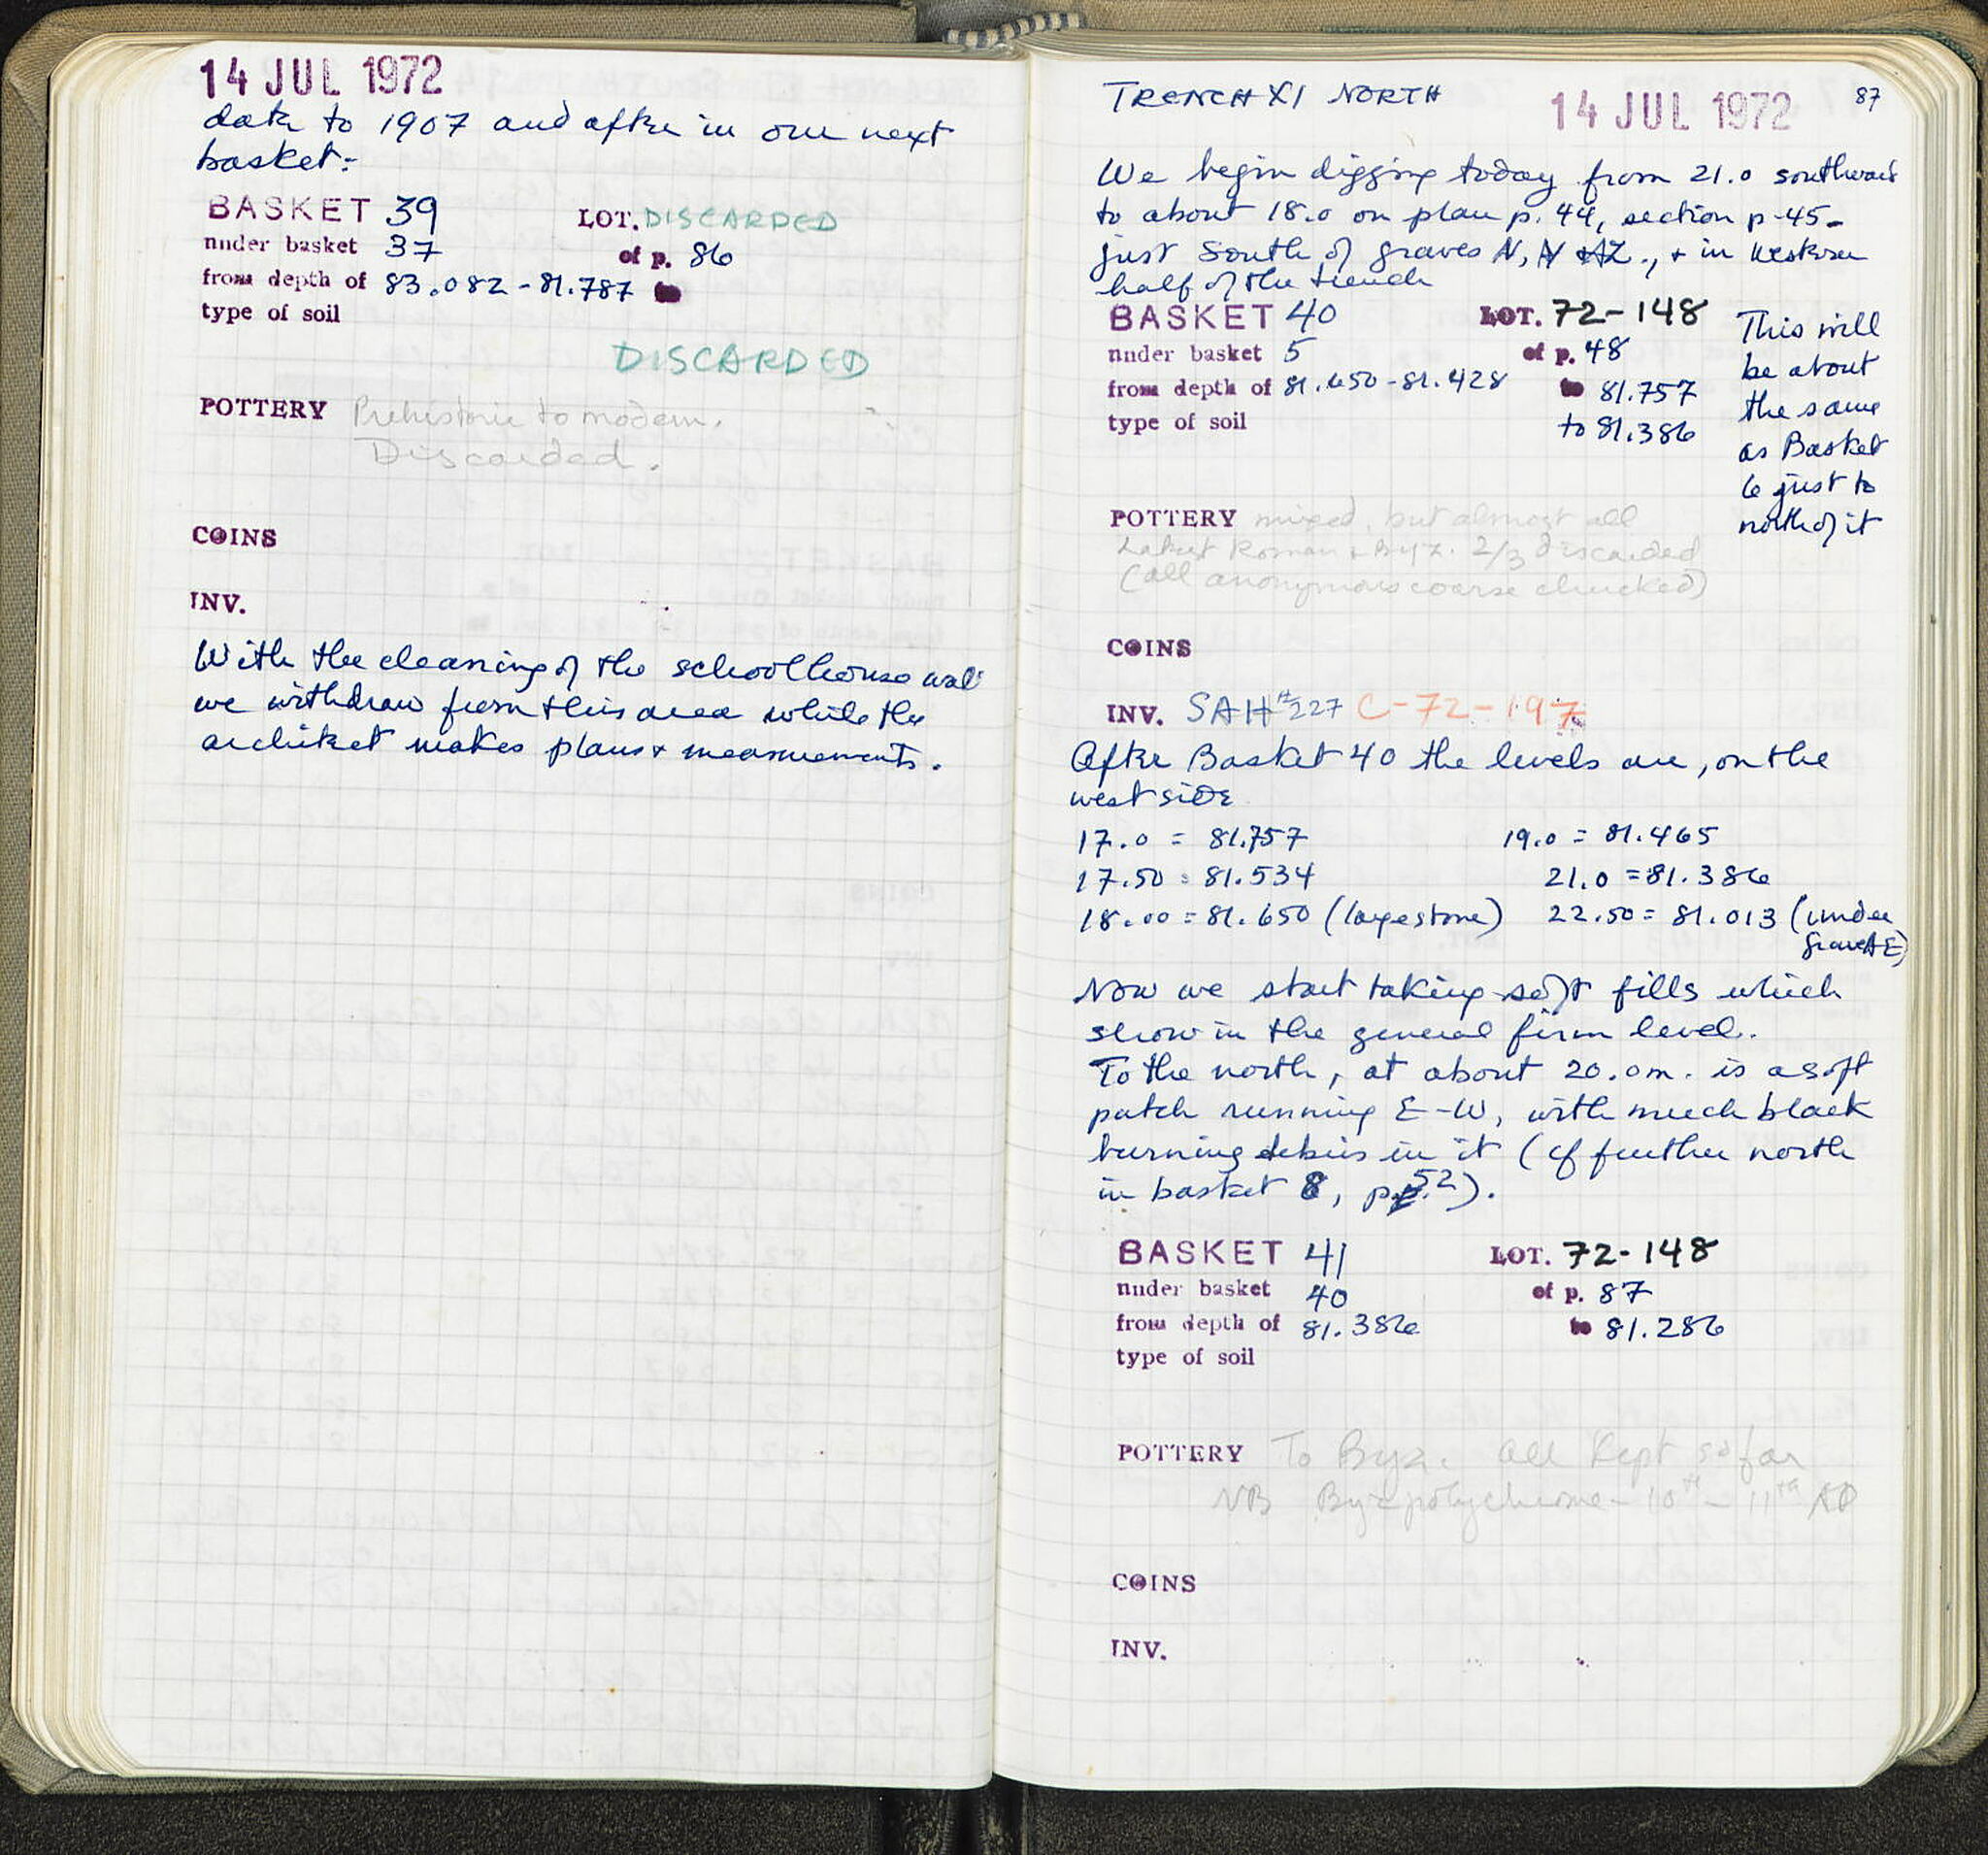 14 JUL 1972
date to 1907 and after in our next
basket:-
BASKET 39 LOT. DISCARDED
under basket 37 of p. 86
from depth of 83.082 - 81.787
type of soil
DISCARDED
POTTERY Prehistoric to modern.
Discarded.
COINS
INV.
With the cleaning of the schoolhouse wall
we withdraw from this area while the
architect makes plans + measurements.
TRENCH XI NORTH 14 JUL 1972 87
We begin digging today from 21.0 southward
to about 18.0 on plan p. 44, section p-45-
just South of graves N, + in Western
half of the trench
BASKET 40 LOT. 72-148
under basket 5 of p. 48
from depth of 81.650 - 81.428 to 81.757
type of soil to 81.386
This will
be about
the same
as Basket
6 just to
north of it
POTTERY mixed, but almost all
Latest Roman + Byz. 2/3 discarded
(all anonymous coarse chucked)
COINS
INV. SAH #227 C-72-197
After Basket 40 the levels are, on the
west side
17.0 = 81.757 19.0 = 81.465
17.50 = 81.534 21.0 = 81.386
18.00 = 81.650 (large stone) 22.50 = 81.013 (under
grave AE)
Now we start taking soft fills which
show in the general firm level.
To the north, at about 20.0m. is a soft
patch running E-W, with much black
burning debris in it (cf further north
in basket 8, p. 52).
BASKET 41 LOT. 72-148
under basket 40 of p. 87
from depth of 81.386 to 81.286
type of soil
POTTERY To Byz. All kept so far
NB Byz polychrome - 10th - 11th AD
COINS
INV.